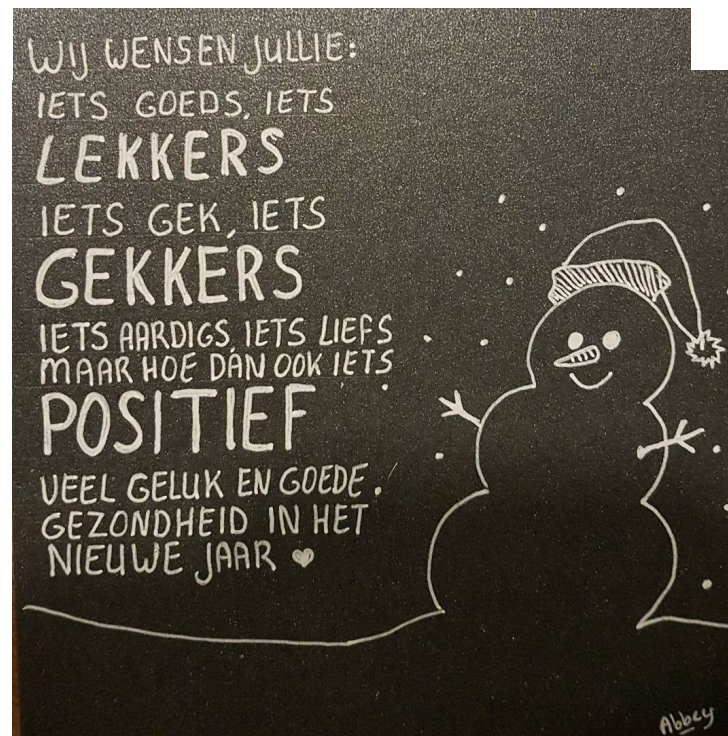 Wij WENSEN JULLIE:
IETS GOEDS, IETS
LEKKERS
IETS GEK, IETS
GEKKERS
IETS AARDIGS, IETS LIEFS
MAAR HOE DAN OOK IETS
POSITIEF
VEEL GELUK EN GOEDE
GEZONDHEID IN HET
NIEUWE JAAR ♥
Abbey